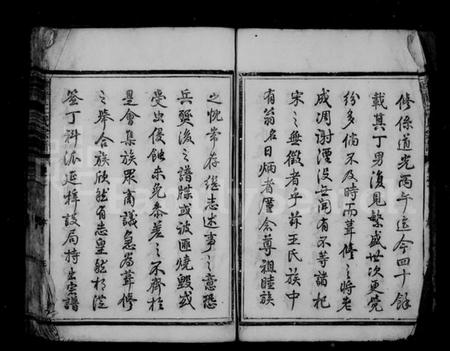 修係道光丙午迄今四十餘
載其丁男復見繁盛世次更覺
紛多倘不及時而葺修之將老
成凋謝湮沒無聞有不等諸杞
宋之無徵者乎茲王氏族中
有翁名日炳者厪念尊祖睦族
之忱常存繼志述事之意恐
兵燹後之譜牒或被匪燒毀或
受虫侵蝕未免參差之不齊於
是會集族眾商議急為葺修
之舉合族欣然有志皇然相從
簽丁科派延梓設局特立宗譜